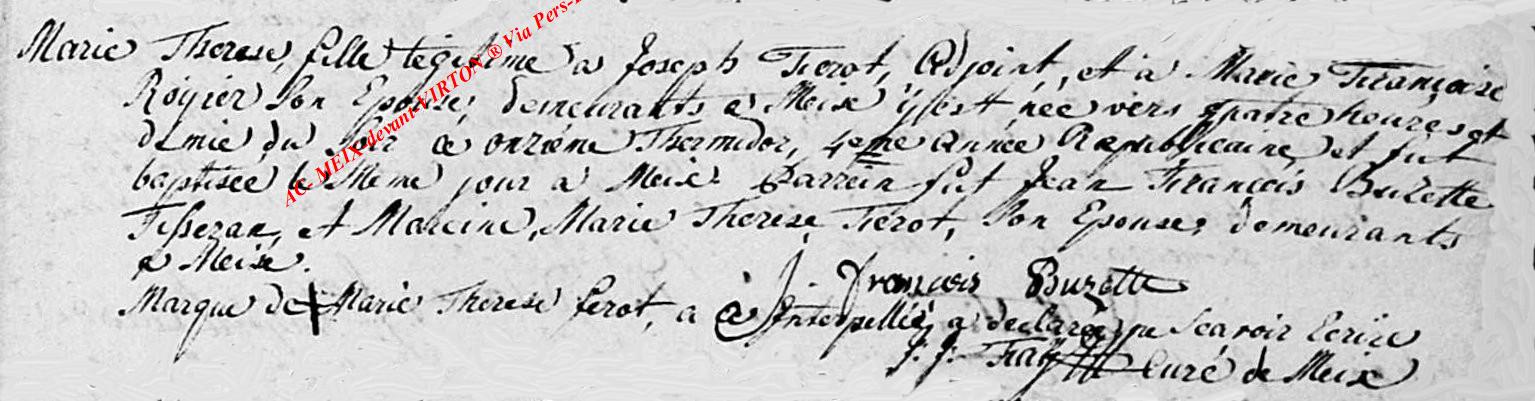 Marie Therese, fille legitime a Joseph Fierot, Adjoint, et a Marie Françoise
Royier Son Epouse, demeurants a Meix y est née vers quatre heures et
demie du Soir ce onzieme Thermidor, 4eme année Republicaine, et fut
baptisée le Meme jour a Meix. Parrein fut Jean François Buzette
Tisseran, et Mareine, Marie Therese Fierot, Son Epouse, demeurants
a Meix.
J. François Buzette
Marque de + Marie Therese ferot, a Interpellée, a declarée ne Scavoir Ecrire
J. J. curé de Meix
AC MEIX devant VIRTON ® Via Pers-